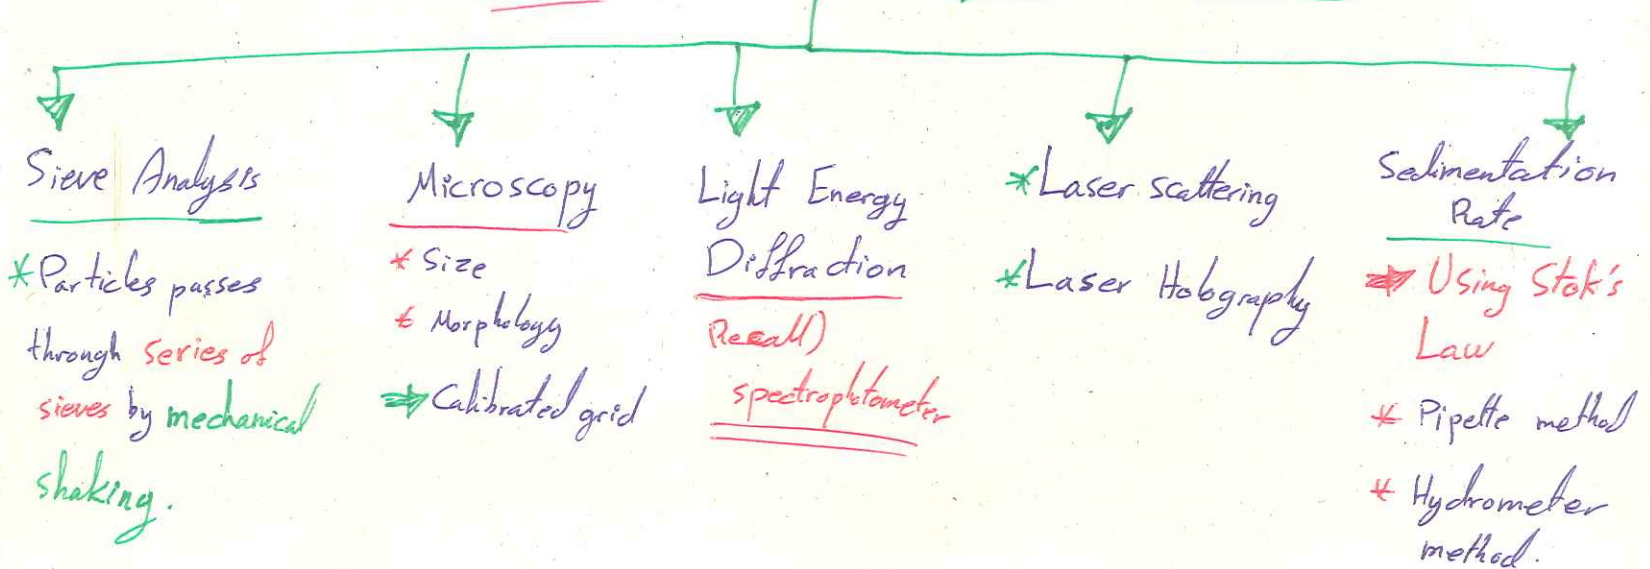 Sieve Analysis
* Particles passes
through series of
sieves by mechanical
shaking.
Microscopy
* Size
* Morphology
⇒ Calibrated grid
Light Energy
Diffraction
Recall)
spectrophotometer
* Laser scattering
* Laser Holography
Sedimentation
Rate
⇒ Using Stok's
Law
* Pipette method
* Hydrometer
method.